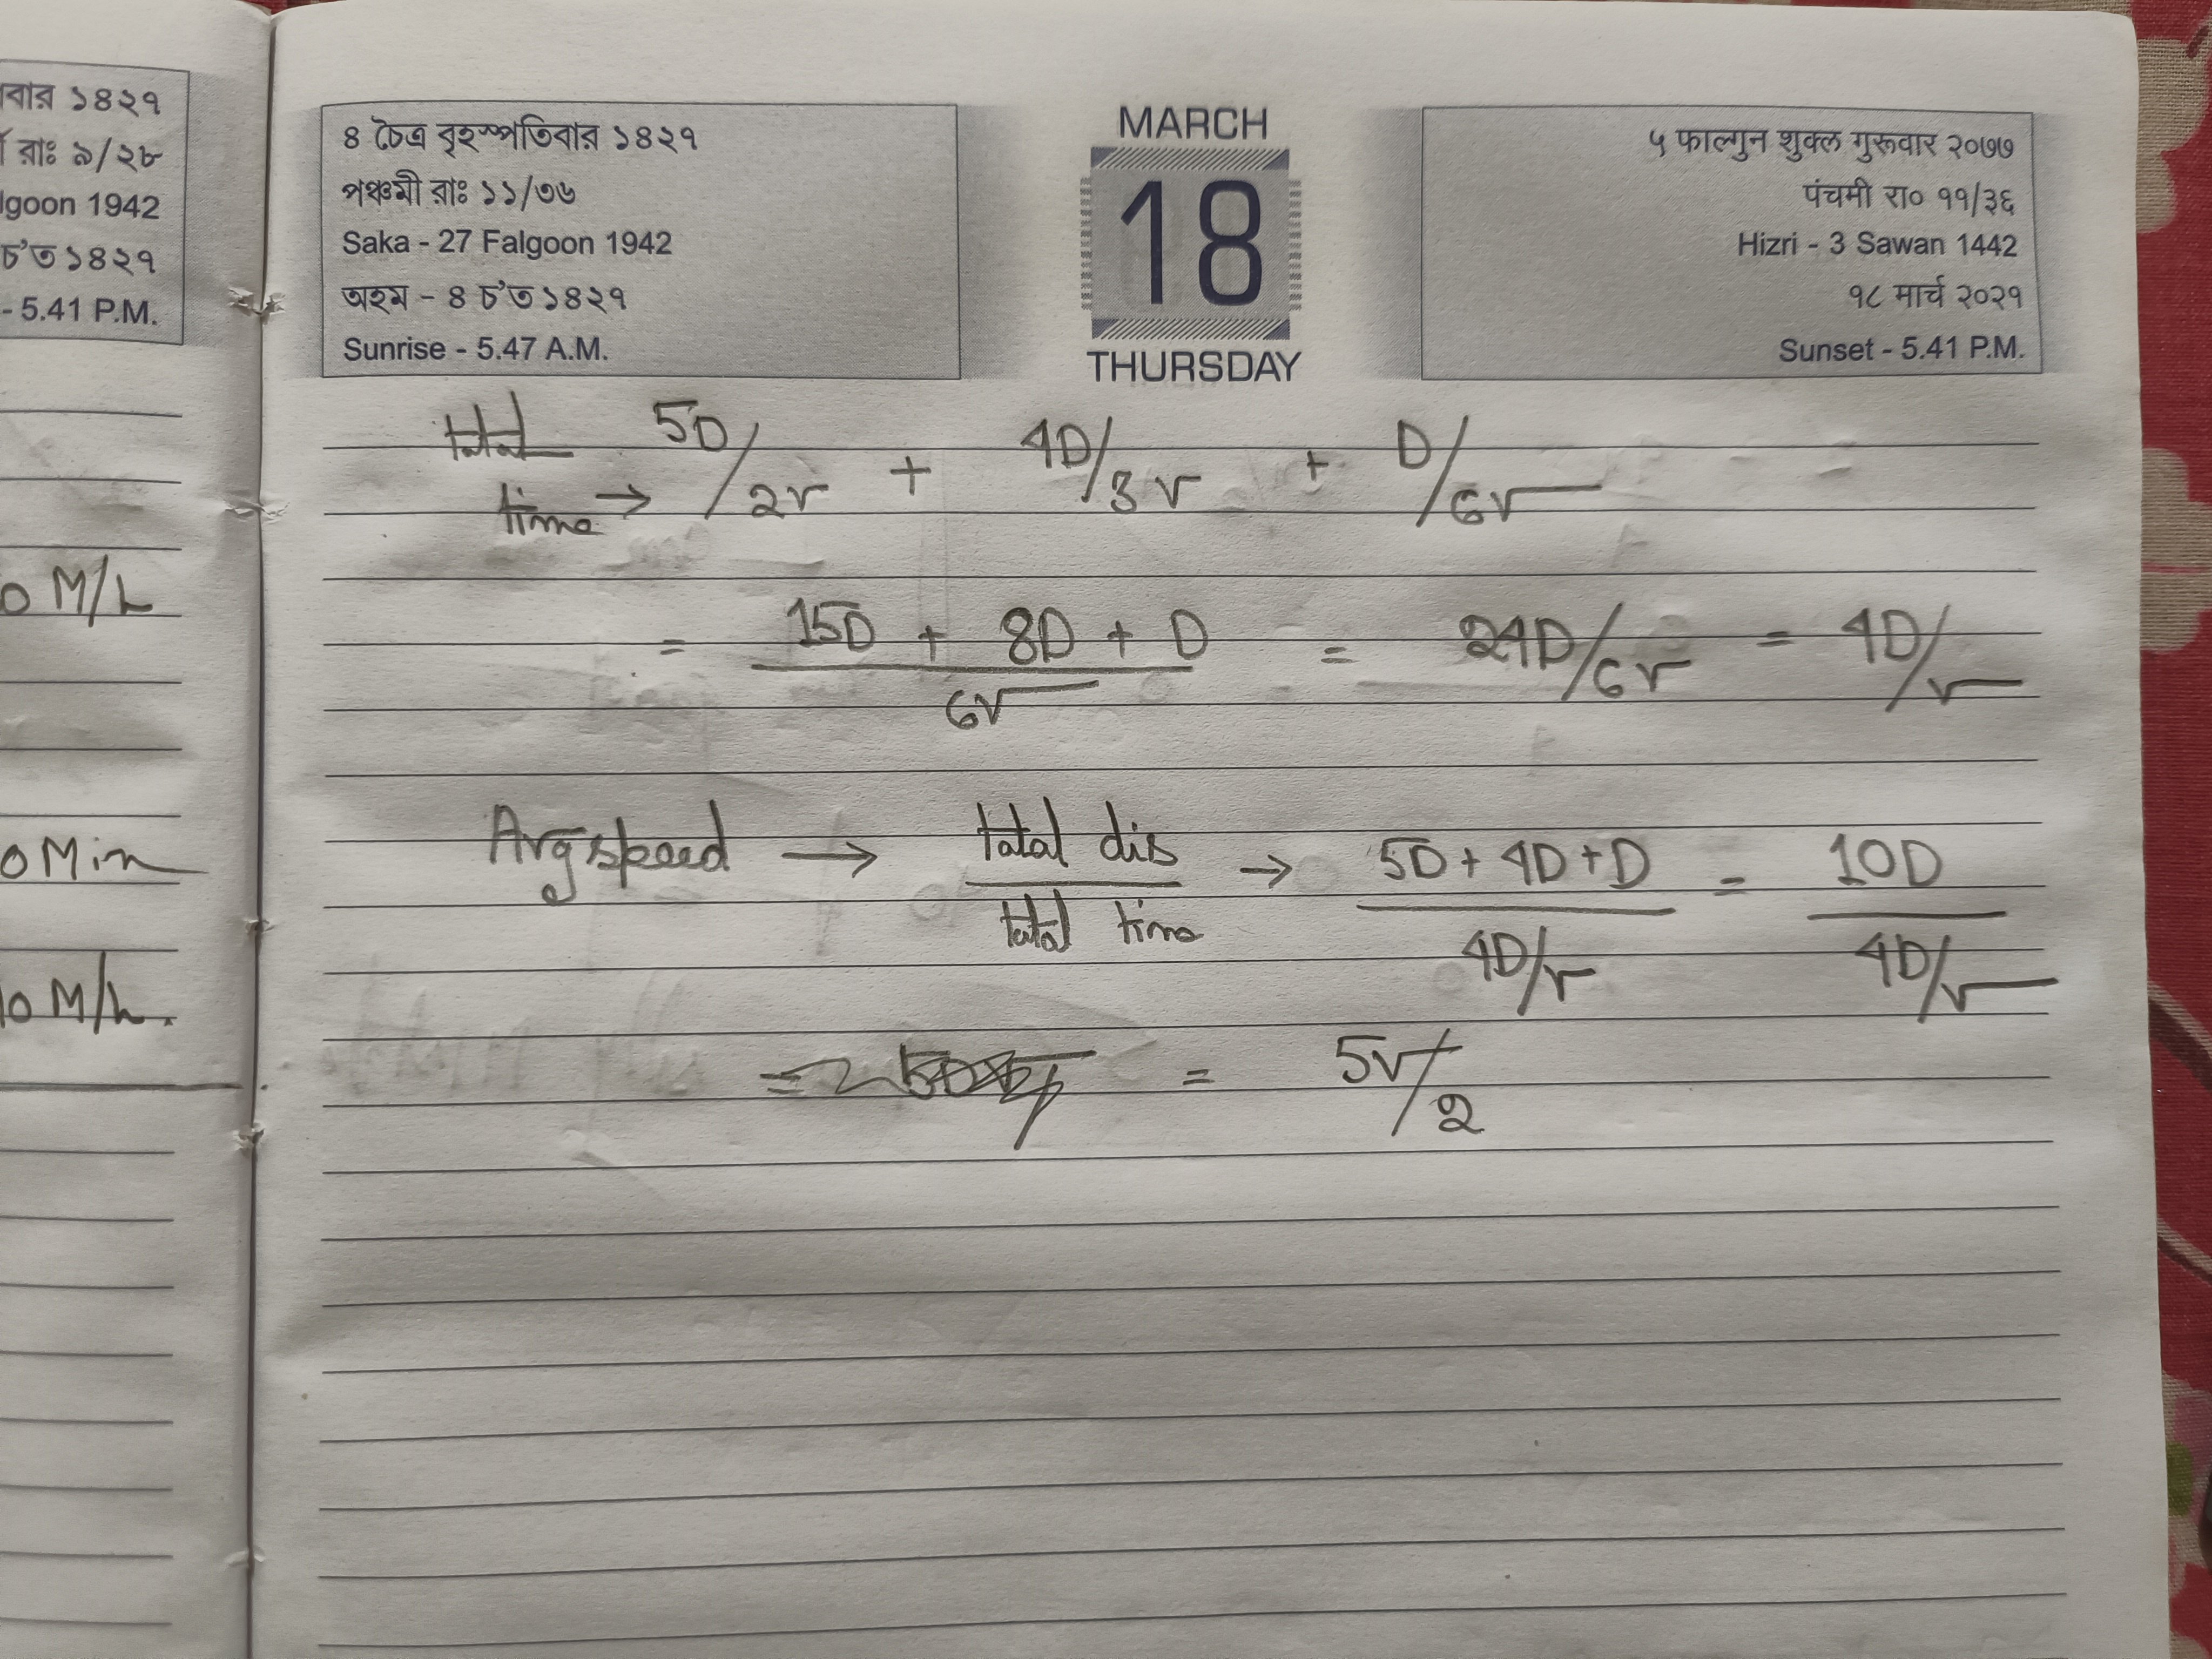 বার ১৪২৭
রাঃ ৯/২৮
lgoon 1942
চ'ত ১৪২৭
- 5.41 P.M.
0 M/h
0 Min
10 M/h.
৪ চৈত্র বৃহস্পতিবার ১৪২৭
পঞ্চমী রাঃ ১১/৩৬
Saka - 27 Falgoon 1942
অহম - ৪ চ'ত ১৪২৭
Sunrise - 5.47 A.M.
MARCH
18
THURSDAY
५ फाल्गुन शुक्ल गुरूवार २०७७
पंचमी रा० ११/३६
Hizri - 3 Sawan 1442
१८ मार्च २०२१
Sunset - 5.41 P.M.
total time → 5D/2v + 4D/3v + D/6v
= 15D + 8D + D / 6v = 24D/6v = 4D/v
Avg speed → total dis / total time → 5D + 4D + D / 4D/v = 10D / 4D/v
= = 5v/2